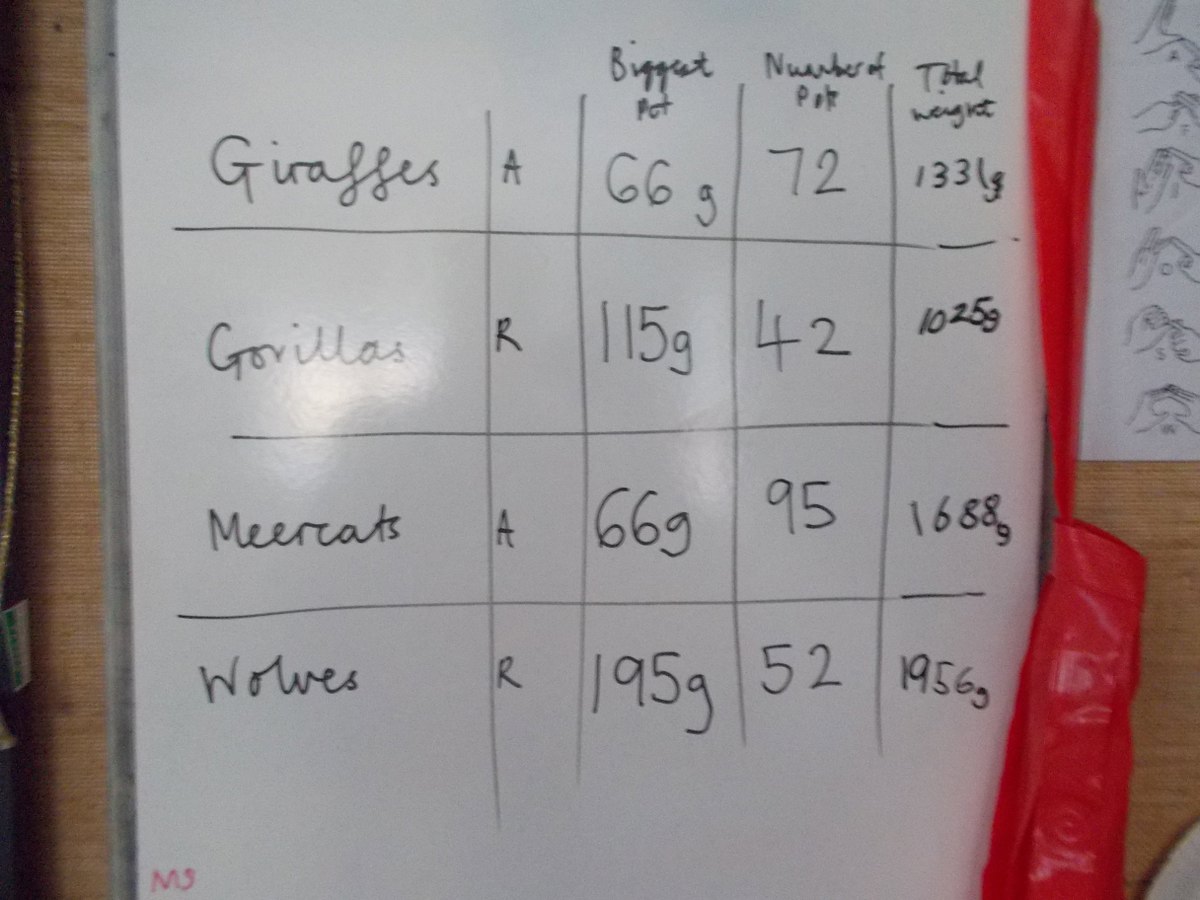 Biggest Number of Total
Pot Pots weight
Giraffes A 66g 72 1331g
Gorillas R 115g 42 1025g
Meercats A 66g 95 1688g
Wolves R 195g 52 1956g